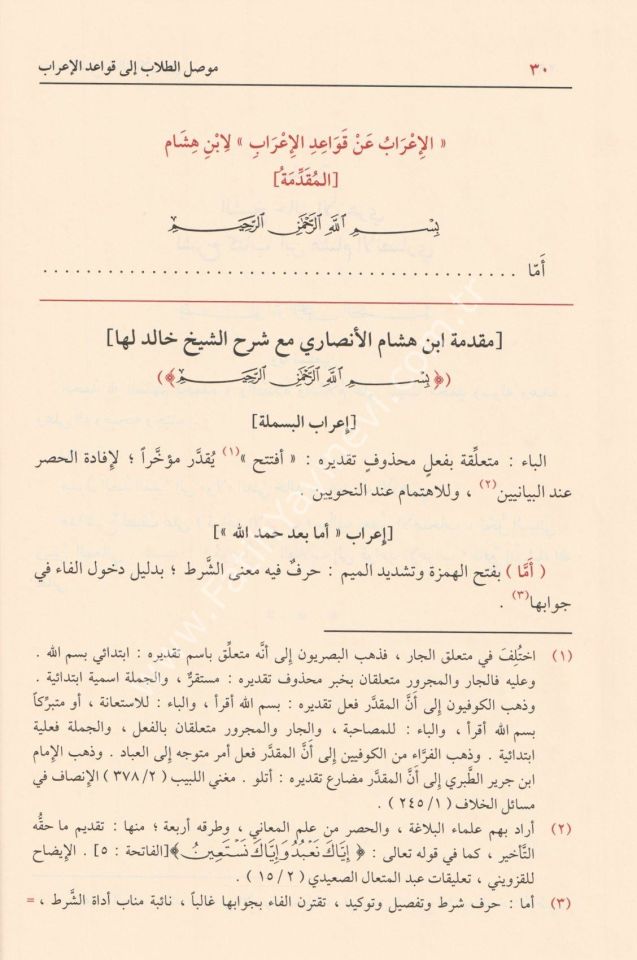 ٣٠ موصل الطلاب إلى قواعد الإعراب
« الإِعْرَابُ عَنْ قَوَاعِدِ الإِعْرَابِ » لِابْنِ هِشَام
[المُقَدِّمَةُ]
بِسْمِ اللَّهِ الرَّحْمَنِ الرَّحِيمِ
أَمَّا . . . . . . . . . . . . . . . . . . . . . . . . . . . . . . . . . . . . . . .
[مقدمة ابن هشام الأنصاري مع شرح الشيخ خالد لها]
(﴿بِسْمِ اللَّهِ الرَّحْمَنِ الرَّحِيمِ﴾)
[إعراب البسملة]
الباء : متعلِّقة بفعلٍ محذوفٍ تقديره : « أفتتح »(١) يُقدَّر مؤخَّراً ؛ لإفادة الحصر
عند البيانيين(٢) ، وللاهتمام عند النحويين .
[إعراب « أما بعد حمد الله »]
( أَمَّا ) بفتح الهمزة وتشديد الميم : حرفٌ فيه معنى الشَّرط ؛ بدليل دخول الفاء في
جوابها(٣) .
(١) اختُلِفَ في متعلق الجار ، فذهب البصريون إلى أنَّه متعلِّق باسم تقديره : ابتدائي بسم الله .
وعليه فالجار والمجرور متعلقان بخبر محذوف تقديره : مستقرٌّ ، والجملة اسمية ابتدائية .
وذهب الكوفيون إلى أَنَّ المقدَّر فعل تقديره : بسم الله أقرأ ، والباء : للاستعانة ، أو متبرِّكاً
بسم الله أقرأ ، والباء : للمصاحبة ، والجار والمجرور متعلقان بالفعل ، والجملة فعلية
ابتدائية . وذهب الفرَّاء من الكوفيين إلى أَنَّ المقدَّر فعل أمر متوجه إلى العباد . وذهب الإمام
ابن جرير الطَّبري إلى أَنَّ المقدَّر مضارع تقديره : أتلو . مغني اللبيب (٢/ ٣٧٨) الإنصاف في
مسائل الخلاف (١/ ٢٤٥) .
(٢) أراد بهم علماء البلاغة ، والحصر من علم المعاني ، وطرقه أربعة ؛ منها : تقديم ما حقُّه
التَّأخير ، كما في قوله تعالى : ﴿ إِيَّاكَ نَعْبُدُ وَإِيَّاكَ نَسْتَعِينُ ﴾[الفاتحة : ٥] . الإيضاح
للقزويني ، تعليقات عبد المتعال الصعيدي (٢/ ١٥) .
(٣) أما : حرف شرط وتفصيل وتوكيد ، تقترن الفاء بجوابها غالباً ، نائبة مناب أداة الشَّرط ، =